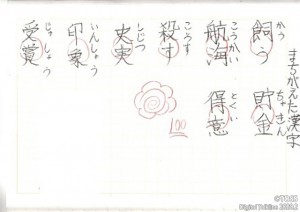 まちがえた漢字
飼う 貯金
かう ちょきん
航海 得意
こうかい とくい
殺す
ころす
史実
しじつ
印象
いんしょう
受賞
じゅしょう
100
©TOSS